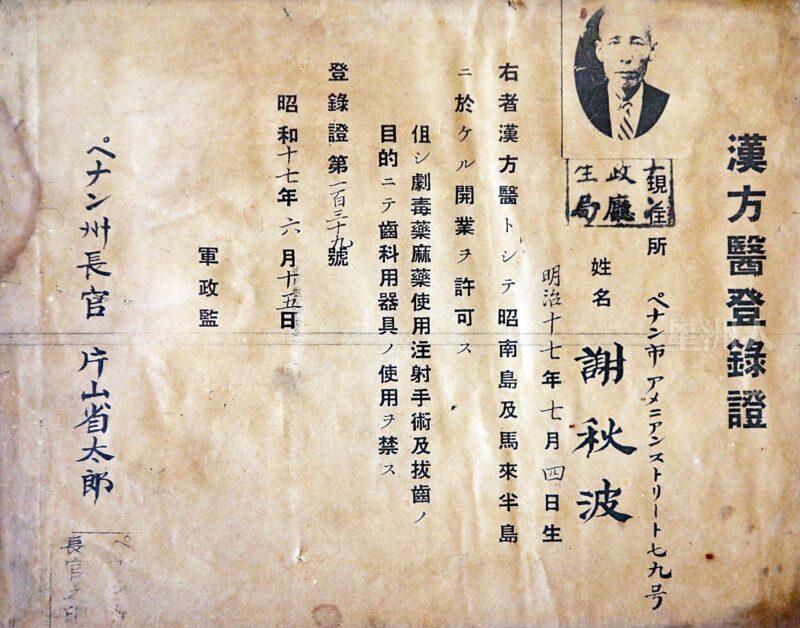 漢方醫登錄證
現住所 ペナン市アメニアンストリート七九号
政廳
生局
姓名 謝秋波
明治十七年七月四日生
右者漢方醫トシテ昭南島及馬來半島
ニ於ケル開業ヲ許可ス
伹シ劇毒藥麻藥使用注射手術及拔齒ノ
目的ニテ齒科用器具ノ使用ヲ禁ス
登錄證第一百三十九號
昭和十七年六月十五日
軍政監
ペナン州長官 片山省太郎
長官之印